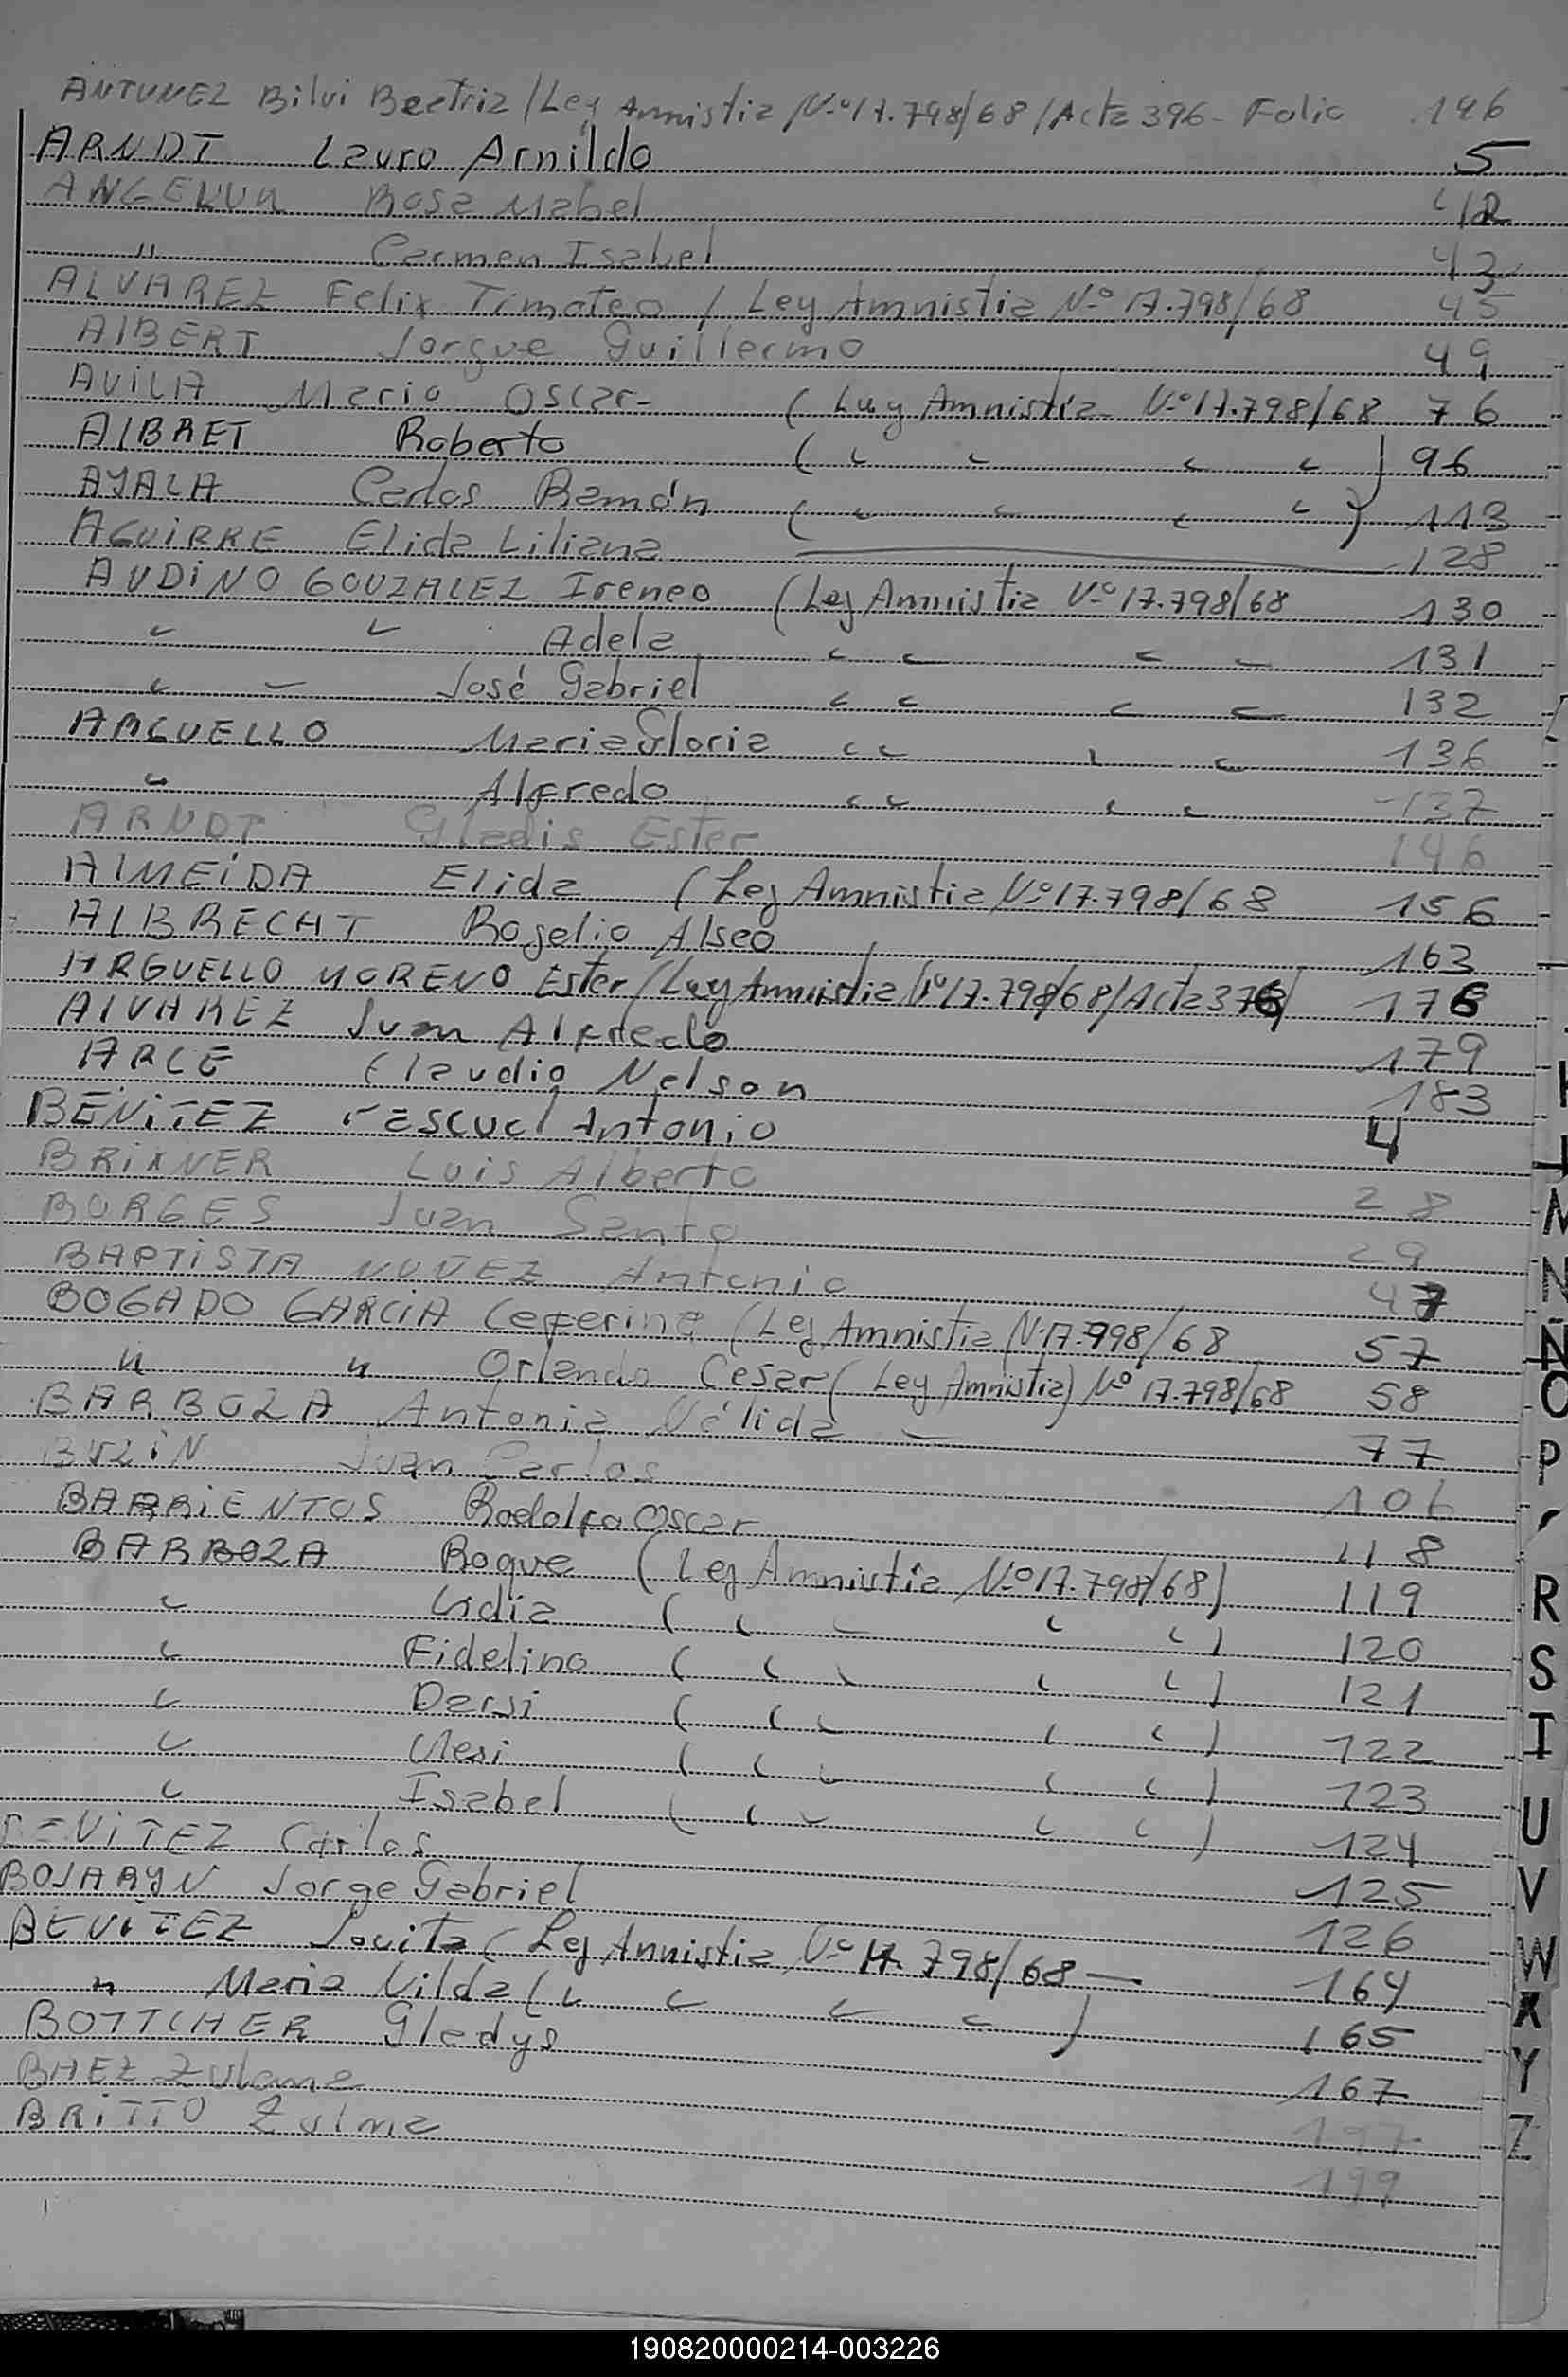 ANTUNEZ Bilvi Beatriz / Ley Amnistia Nº 17.798/68 / Acta 396 - Folio 196
ARNDT Lauro Arnildo 5
Rosa Mabel 42
" Carmen Isabel 43
ALVAREZ Felix Timoteo / Ley Amnistia Nº 17.798/68 45
AlBERT Jorgue Guillermo 49
AViLA Mario Oscar- ( Ley Amnistia Nº 17.798/68 76
AlBRET Roberto ( " " " " ) 96
AYALA Carlos Ramón ( " " " " ) 113
AGUiRRE Elida Liliana 128
AUDiNO GONZALEZ Ireneo ( Ley Amnistia Nº 17.798/68 130
" " Adela " " " " 131
" " José Gabriel " " " " 132
ARGUELLO Maria Gloria " " " " 136
" Alfredo " " " " 137
ARNDT Gladis Ester 146
AlMEiDA Elida ( Ley Amnistia Nº 17.798/68 156
AlBRECHT Rogelio Alseo 163
ARGUELLO MORENO Ester / Ley Amnistia Nº 17.798/68 / Acta 376 / 176
AlVAREZ Juan Alfredo 179
ARCE Claudio Nelson 183
BENiTEZ Pascual Antonio 4
BRiXNER Luis Alberto 28
BORGES Juan Santo 29
BAPTiSTA NUÑEZ Antonio 47
BOGADO GARCiA Ceferina ( Ley Amnistia Nº 17.998/68 57
" " Orlando Cesar ( Ley Amnistia) Nº 17.798/68 58
BARBOZA Antonia Nélida - 77
BUZiN Juan Carlos 106
BARRiENTOS Rodolfo Oscar 118
BARBOZA Roque ( Ley Amnistia Nº 17.798/68) 119
" Lidia ( " " " " ) 120
" Fidelino ( " " " " ) 121
" Darsi ( " " " " ) 122
" ( " " " " ) 123
" Isabel ( " " " " ) 124
BENiTEZ Carlos 125
BOJARYN Jorge Gabriel 126
BENiTEZ Jovita ( Ley Amnistia Nº 17.798/68 — 164
" Maria Nilda ( " " " " ) 165
BOTTCHER Gladys 167
BAEZ 197
BRiTTO Zulma 199
M
N
Ñ
O
P
R
S
I
U
V
W
X
Y
Z
190820000214-003226